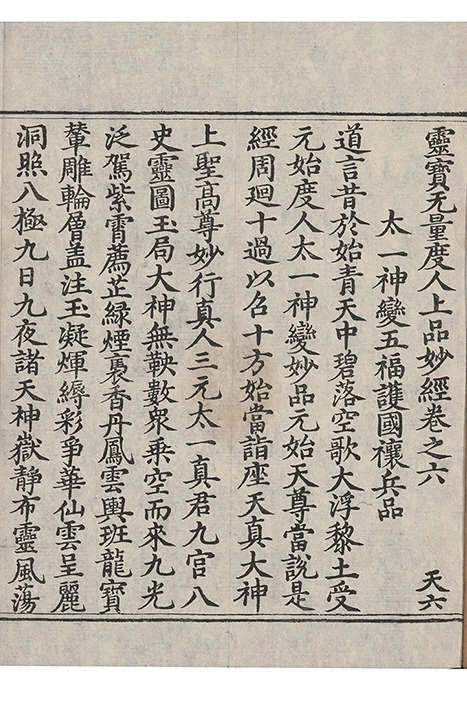 靈寶无量度人上品妙經卷之六 天六
太一神變五福護國禳兵品
道言昔於始青天中碧落空歌大浮黎土受
元始度人太一神變妙品元始天尊當說是
經周廻十過以召十方始當詣座天真大神
上聖高尊妙行真人三元太一真君九官八
史靈圖玉局大神無鞅數衆乘空而來九光
泛駕紫霄薦芷緑煙褭香丹鳳雲輿班龍寶
輦雕輪層盖注玉凝煇縟彩爭華仙雲呈麗
洞照八極九日九夜諸天神嶽靜布靈風蕩